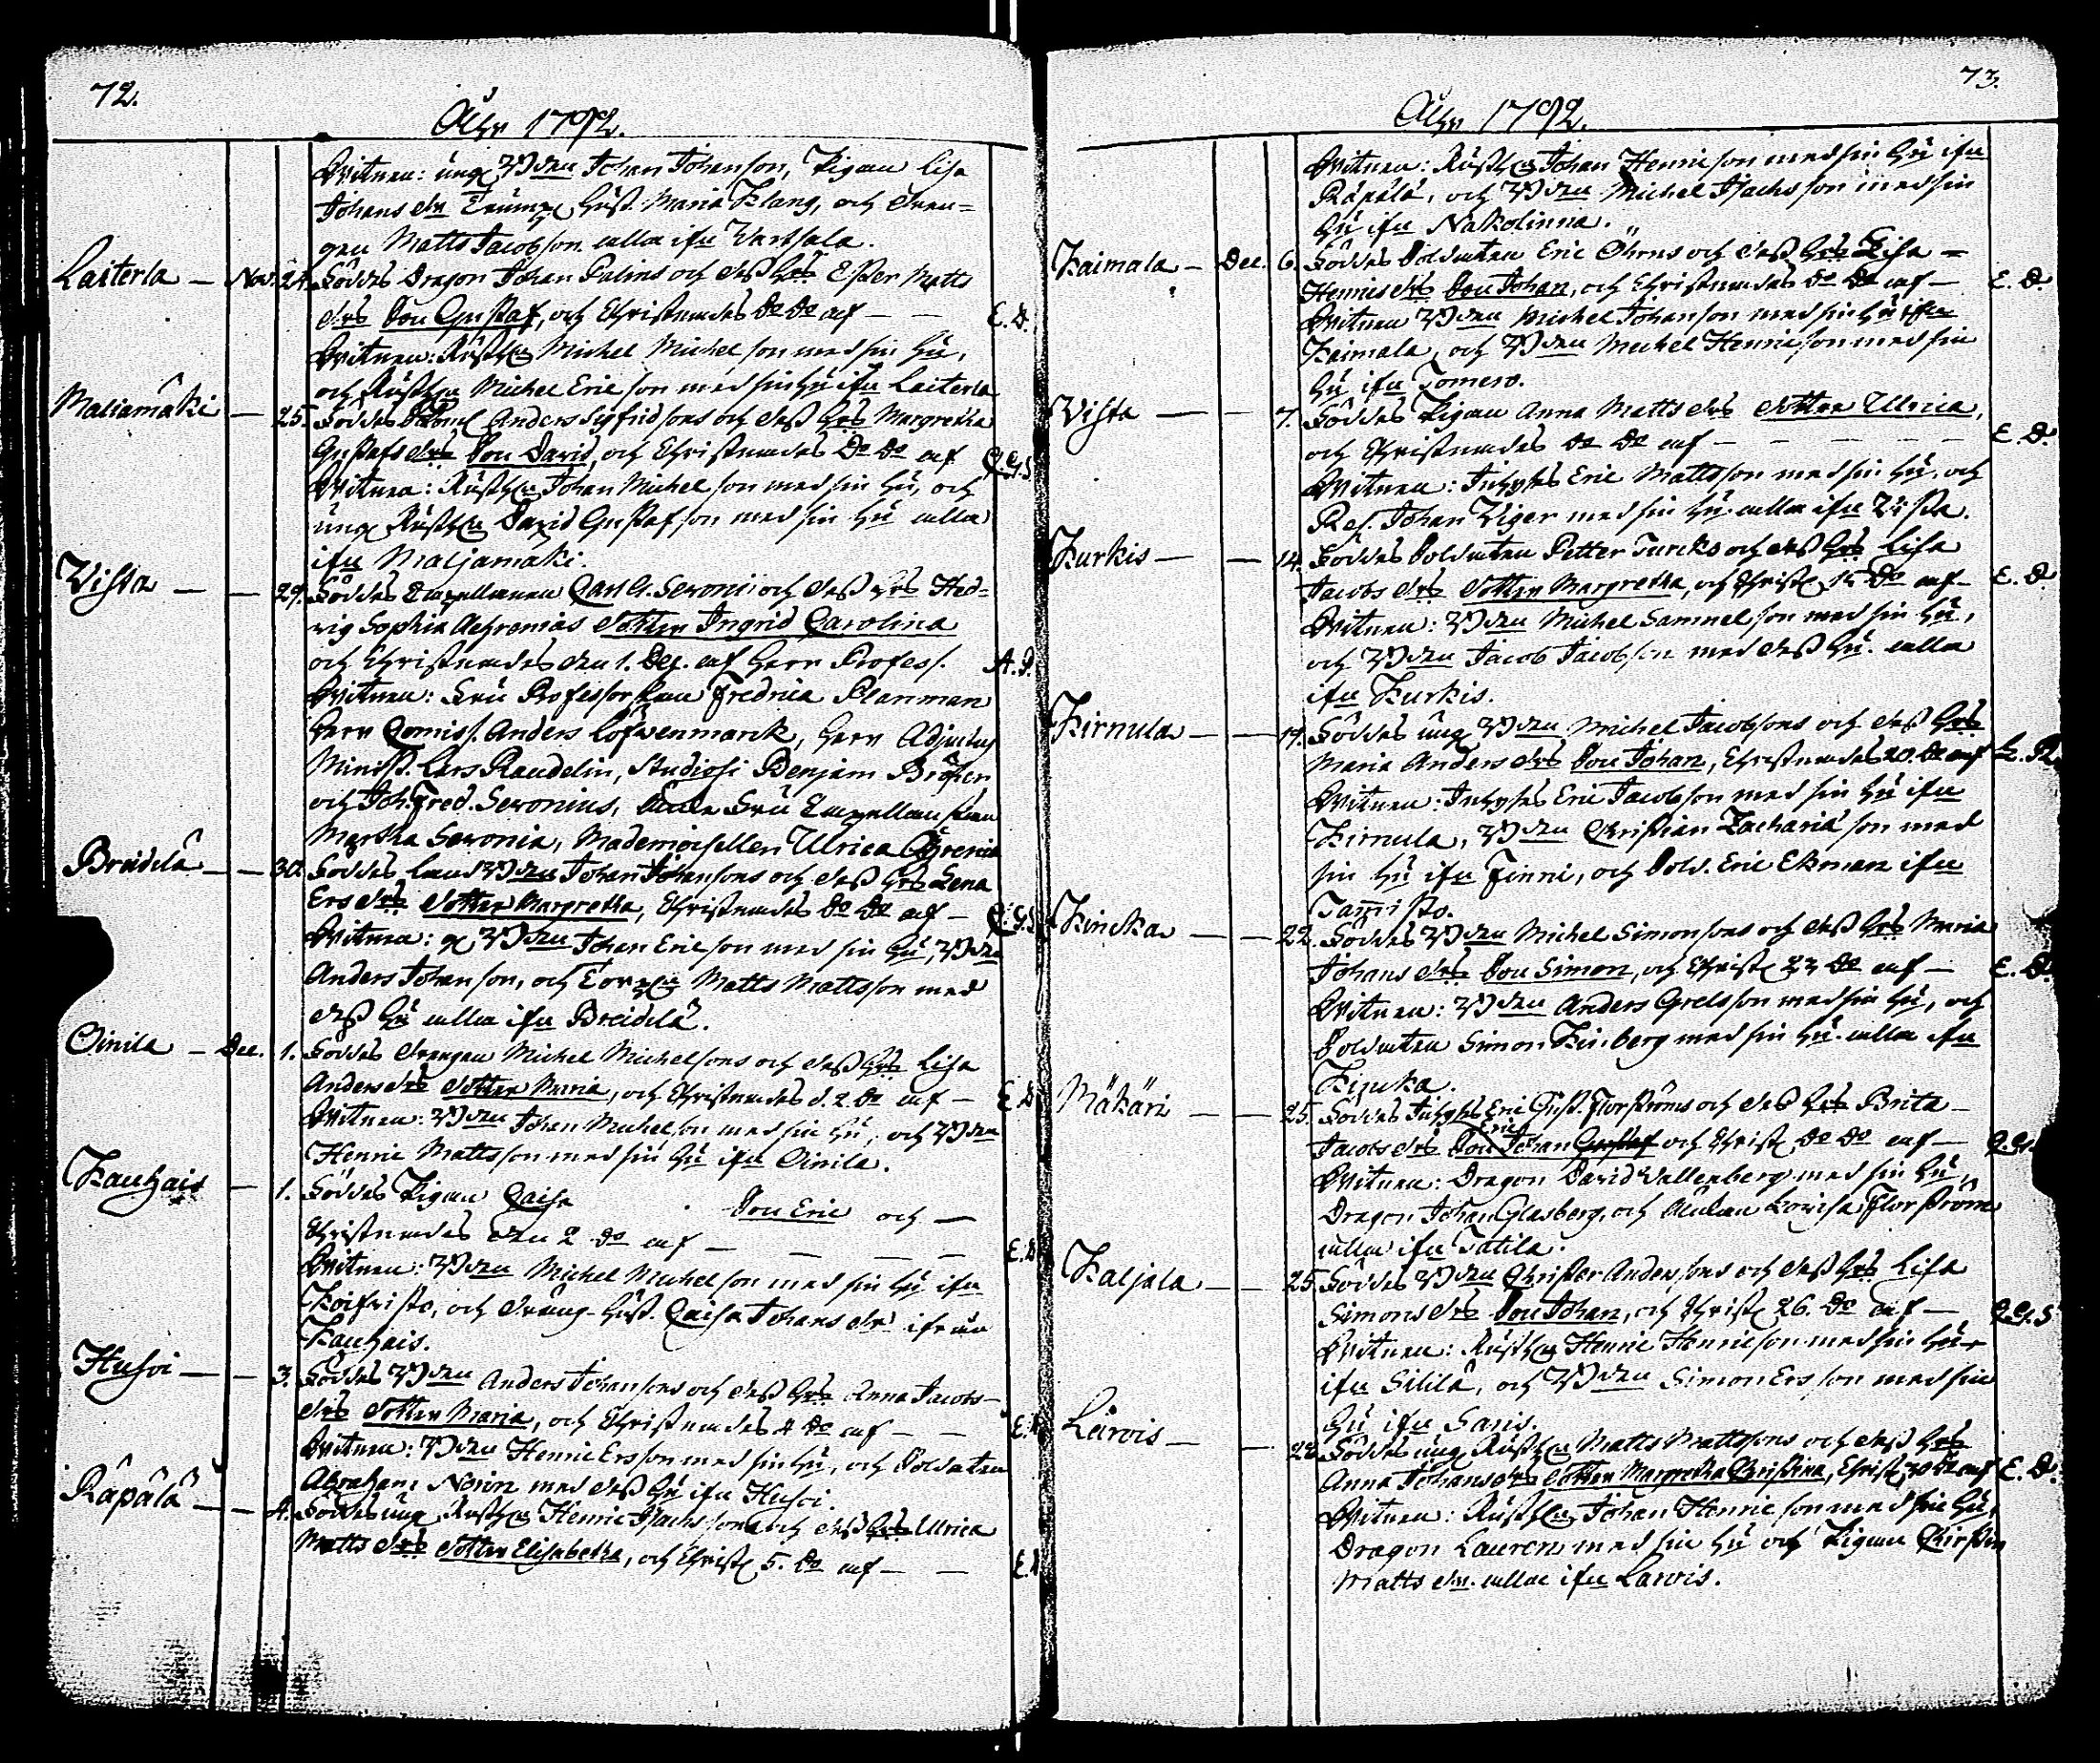 72.
Åhr 1792.
Witnen: ung Bden Johan Johanson, Pigan Lisa
Johans dr Hust. Maria Klang, och Dren=
gen Matts Jacobson alla ifrn Wartsala.
Laiterla — Nov. 24. Föddes Dragon Johan Palins och dess Hrs Ester Matts
drs Son Gustaf, och Christnades do do af — — E. D.
Witnen: Rusth Michel Michelson med sin Hu,
och Rusth Michel Ericson med sin Hu ifrn Laiterla
Maliamäki — 25. Föddes Anders Sigfridsons och dess Hrs Margretha
Gustafs drs Son David, och Christnades do do af C. G. S.
Witnen: Rusth Johan Michelson med sin Hu, och
ung Rusth David Gustafson med sin Hu alla
ifrn Maljamäki.
Vista — — 29. Föddes Capellanen Carl G. Seronii och dess Hrs Hed-
vig Sophia Dotter Ingrid Carolina
och Christnades den 1. Dec. af Herr Profess. A. P.
Witnen: Fru Professorskan Fredrica Planman
Herr Comiss. Anders Löfvenmarck, Herr Adjuncten
Minist. Lars Randelin, Studiosi Benjam
och Joh. Fred. Seronius, Fru Capellanskan
Martha Seronia, Mademoisellen Ulrica
Breidilä — — 30. Föddes Land Bden Johan Johansons och dess Hrs Lena
Ers drs Dotter Margretha, Christnades do do af — C. G. S.
Witnen: g Bden Johan Ericson med sin Hu, Bden
Anders Johanson, och Torp Matts Mattsson med
dess Hu alla ifrn Breidilä.
Oinila — Dec. 1. Föddes Drengen Michel Michelsons och dess Hrs Lisa
Anders drs Dotter Maria, och Christnades d. 2. do af — E. D.
Witnen: Bden Johan Michelson med sin Hu, och Bden
Henric Mattsson med sin Hu ifrn Oinila.
Kauhais — 1. Föddes Pigan Caisa Son Eric och —
Christnades den 2 do af — — — — E. D.
Witnen: Bden Michel Michelson med sin Hu ifrn
Koifvisto, och Dräng-Hust. Caisa Johans dr ifrån
Kauhais.
Husoi — — 3. Föddes Bden Anders Johansons och dess Hrs Anna Jacobs-
drs Dotter Maria, och Christnades 4 do af — — E. D.
Witnen: Bden Henric Ersson med sin Hu, och Soldaten
Abraham Norin med dess Hu ifrn Husoi.
Räpälä — — 4. Föddes ung Rusth Henric Isachssons och dess Hrs Ulrica
Matts drs Dotter Elisabetha, och Christ 5. do af — — E. D.
73.
Åhr 1792.
Witnen: Rusth Johan Henricson med sin Hu ifrn
Räpälä, och Bden Michel Isachsson med sin
Hu ifrn Nakolinna.
Kaimala — Dec. 6. Föddes Soldaten Eric Öhrns och dess Hrs Lisa =
Henrics drs Son Johan, och Christnades do do af — E. D.
Witnen Bden Michel Johanson med sin Hu ifrn
Kaimala, och Bden Michel Henricson med sin
Hu ifrn Tomero.
Vista — — 7. Föddes Pigan Anna Matts drs Dotter Ulrica,
och Christnades do do af — — — — — E. D.
Witnen: Inhyses Eric Mattsson med sin Hu, och
Ref. Johan Viger med sin Hu alla ifrn Vista.
Kurkis — — 14. Föddes Soldaten Petter Turcks och dess Hrs Lisa
Jacobs drs Dotter Margretha, och Christ 15 do af — E. D
Witnen: Bden Michel Samuelson med sin Hu,
och Bden Jacob Jacobson med dess Hu alla
ifrn Kurkis.
Kirnula — — 19. Föddes ung Bden Michel Jacobsons och dess Hrs
Maria Anders drs Son Johan, Christnades 20. do af L. R.
Witnen: Inhyses Eric Jacobson med sin Hu ifrn
Kirnula, Bden Christian Zachariason med
sin Hu ifrn Finni, och Sold. Eric Ekman ifrn
Tam̄isto.
Kincka — — 22. Föddes Bden Michel Simonsons och dess Hrs Maria
Johans drs Son Simon, och Christ 23 do af — E. D.
Witnen: Bden Anders Grelsson med sin Hu, och
Soldaten Simon Kinberg med sin Hu alla ifrn
Kincka.
Mäkäri — — 25. Föddes Inhyses Eric Gust. Florströms och dess Hrs Brita —
Jacobs drs Son Johan Eric Gustaf och Christ do do af — C. G. S.
Witnen: Dragon David Wallenberg med sin Hu,
Dragon Johan Glasberg, och Lovisa Florström
alla ifrn Tatila.
Kaljala — — 25. Föddes Bden Christer Andersons och dess Hrs Lisa
Simons drs Son Johan, och Christ 26. do af — C. G. S
Witnen: Rusth Henric Henricson med sin Hu
ifrn Sililä, och Bden Simon Ersson med sin
Hu ifrn Saris.
Lärvis — — 28. Föddes ung Rusth Matts Mattsons och dess Hrs
Anna Johans drs Dotter Margretha Christina, Christ 30 do af E. D.
Witnen: Rusth Johan Henricson med sin Hu,
Dragon Lauren med sin Hu och Pigan Chirstin
Matts dr. alla ifrn Larvis.